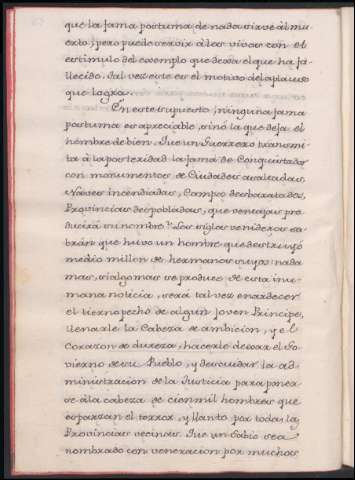 que la fama postuma de nada sirve al mu-
erto, pero puede servir a los vivos con el
estimulo del exemplo que dexa el que ha fa-
llecido. Tal vez este es el motivo del aplauso
que logra.
En este supuesto, ninguna fama
postuma es apreciable, sinó la que deja el
hombre de bien. Que un Guerrero transmi-
ta á la posteridad la fama de Conquistador
con monumentos de Ciudades asaltadas,
Naves incendiadas, Campos desbaratados,
Provincias despobladas, que ventajas pro-
ducirá su nombre? Los siglos venideros sa-
brán que huvo un hombre que destruyó
medio millon de hermanos suyos: nada
mas, si algo mas se produce de esta inu-
mana noticia, será tal vez enardecer
el tierno pecho de algún joven Principe,
llenarle la Cabeza de ambicion, y el
Corazon de dureza, hacerle dexar el Go-
vierno de su Pueblo, y descuidar la ad-
ministracion de la Justicia para poner-
se á la cabeza de cien mil hombres que
esparzan el terror, y llanto por todas las
Provincias vecinas. Que un Sabio sea
nombrado con veneracion por muchos